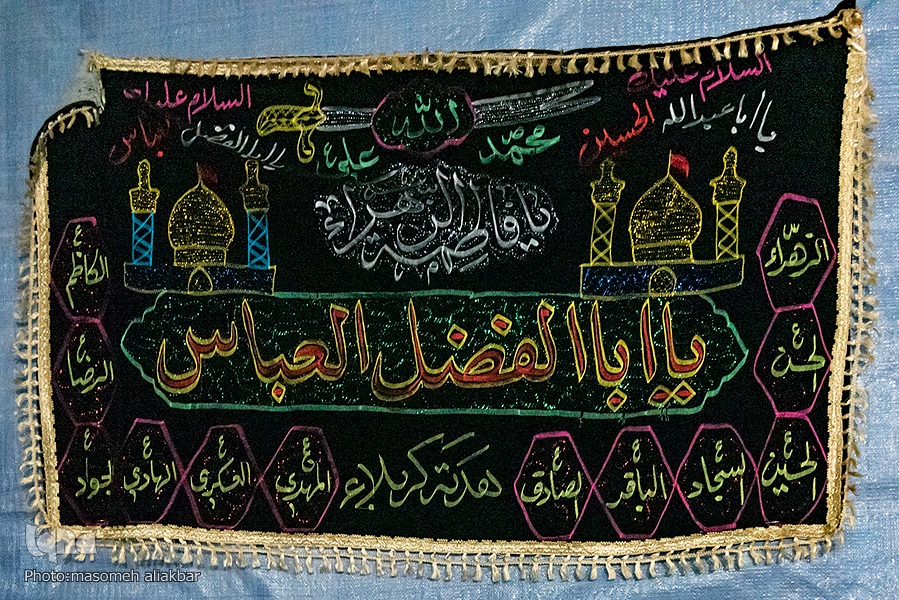 السلام عليك
يا ابا عبدالله الحسين
السلام عليك
يا ابا الفضل العباس
الله
محمد
علي
يا فاطمة الزهراء
يا ابا الفضل العباس
الزهراء
الحسن
الحسين
السجاد
الباقر
الصادق
هدية كربلاء
الكاظم
الرضا
الجواد
الهادي
العسكري
المهدي
Photo:masomeh aliakbar